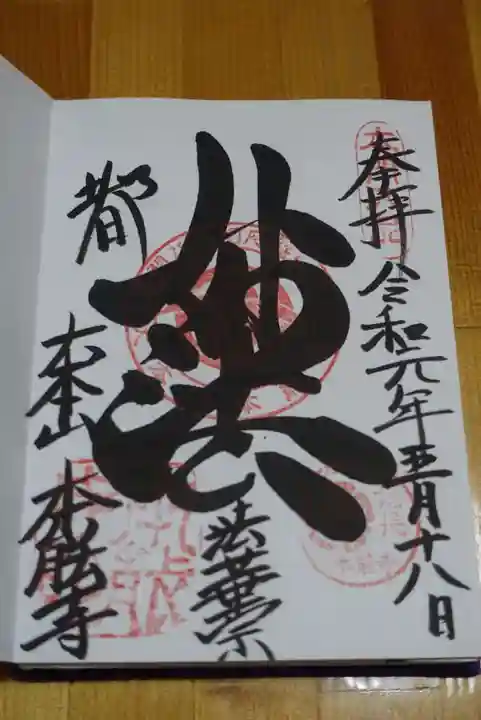 奉拝 令和元年五月十八日
妙法
法華宗
都
大本山 本能寺